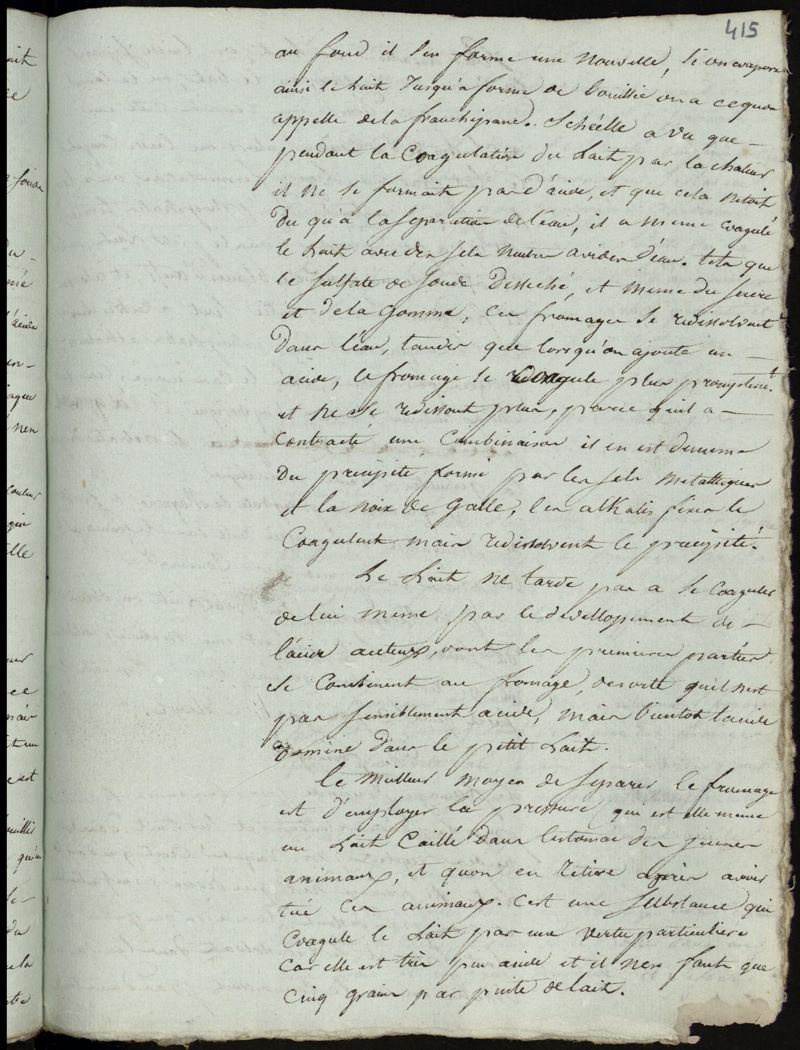 415
au fond il s'en forme une nouvelle, si on evapore
ainsi le lait jusqu'a forme de bouillie on a ce qu'on
appelle de la franchipane. Schéelle a vu que
pendant la Coagulation du lait par la chaleur
il ne se formait pas d'acide, et que cela n'etait
du qu'a la separation de l'eau, il a meme coagulé
le lait avec des sels neutres avides d'eau. tels que
le sulfate de soude desseché, et meme du sucre
et de la gomme, ces fromages se redissolvent
dans l'eau, tandis que lorsqu'on ajoute un
acide, le fromage se coagule plus promptemt.
et ne se redissout plus, parce qu'il a
contracté une Combinaison il en est de meme
du precipité formé par les sels metalliques
et la noix de galle, les alkalis fixes le
Coagulent mais redissolvent le precipité.
Le lait ne tarde pas a se coaguler
de lui meme par le devellopement de
l'acide aceteux, dont les premieres parties
se Combinent au fromage, desorte qu'il n'est
pas sensiblement acide, mais bientot l'acide
domine dans le petit lait.
le meilleur moyen de separer le fromage
est d'employer la pressure qui est elle meme
un lait Caillé dans l'estomac des jeunes
animaux, et qu'on en retire après avoir
tué ces animaux. C'est une substance qui
Coagule le lait par une vertu particuliere
Car elle est très peu acide et il n'en faut que
Cinq grains par pinte de lait.